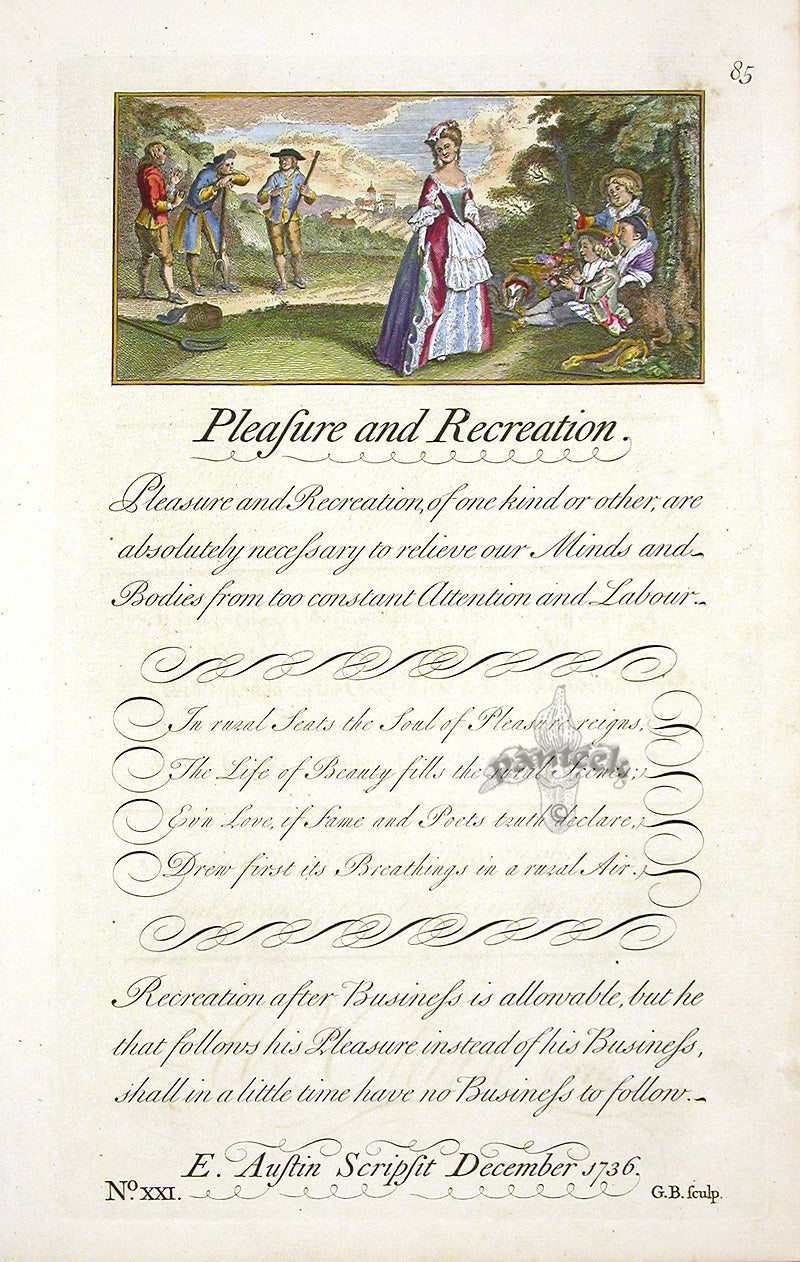 85
Pleaſure and Recreation.
Pleasure and Recreation, of one kind or other, are
absolutely neceſsary to relieve our Minds and
Bodies from too constant Attention and Labour.
In rural Seats the Soul of Pleasure reigns,
The Life of Beauty fills the rural Scenes;
Ev'n Love, if Fame and Poets truth declare,
Drew first its Breathings in a rural Air.
panteek
©
Recreation after Buſineſs is allowable, but he
that follows his Pleasure instead of his Busineſs,
shall in a little time have no Busineſs to follow.
E. Auſtin Scripſit December 1736.
No. XXI.
G.B. ſculp.